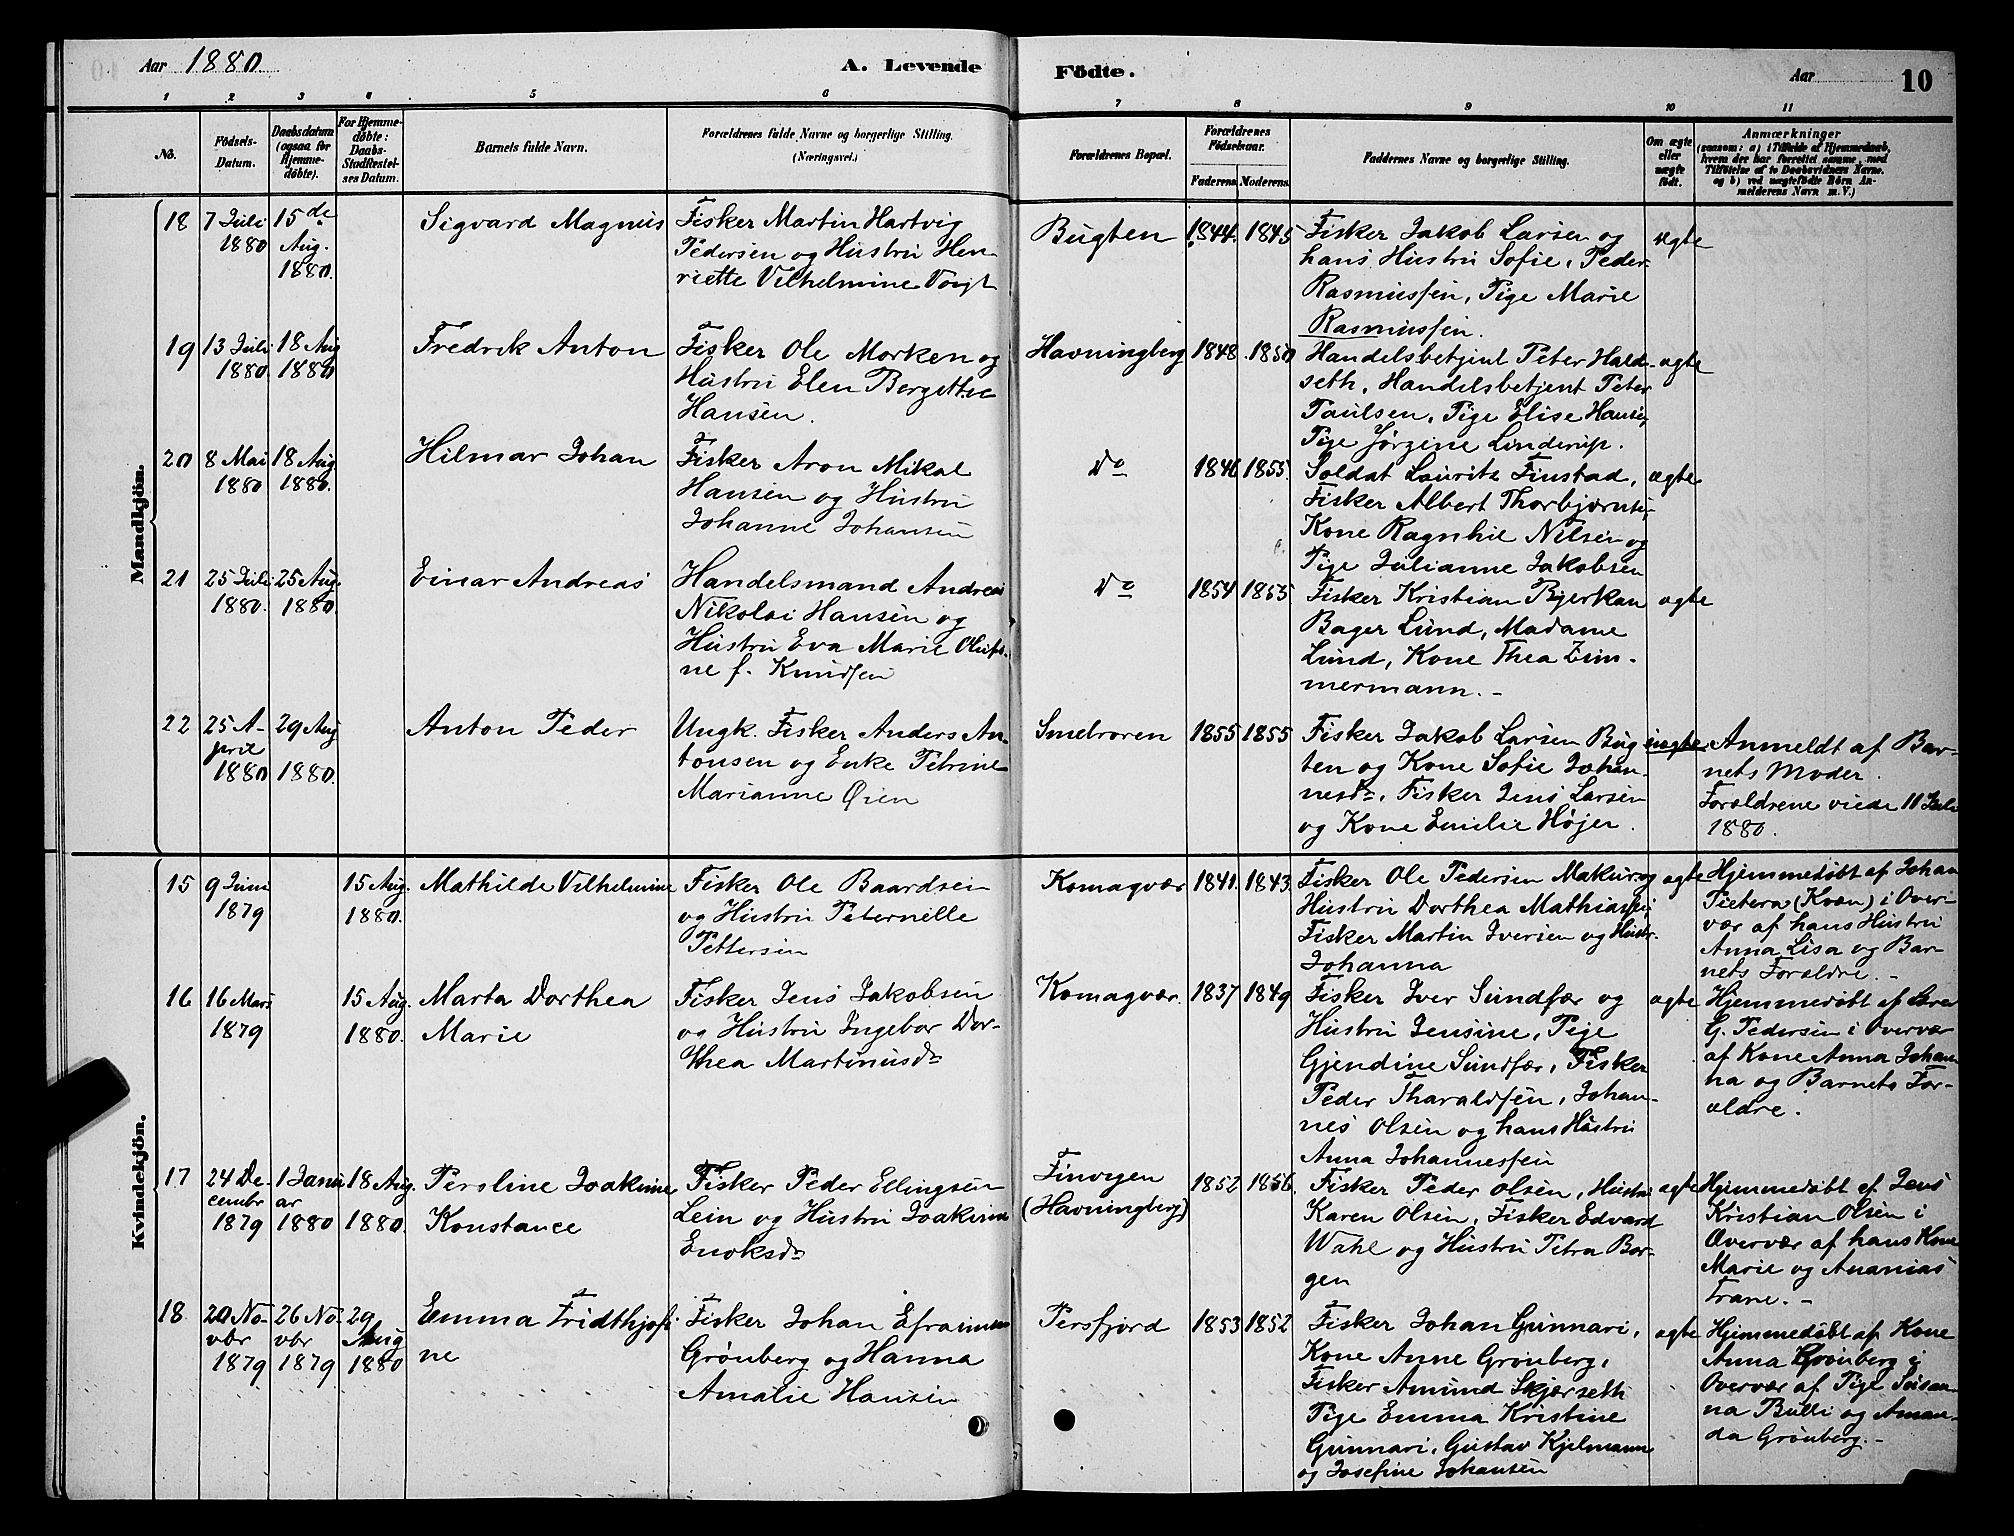 Aar 1880. A. Levende Födte. Aar 10
1 2 3 4 5 6 7 8 9 10 11
No. Födsels-Datum. Daabsdatum (ogsaa for Hjemmedöbte). For Hjemmedöbte: Daabs-Stadfæstelses Datum. Barnets fulde Navn. Forældrenes fulde Navne og borgerlige Stilling. (Næringsvei.) Forældrenes Bopæl. Forældrenes Födselsaar. Faderens. Moderens. Faddernes Navne og borgerlige Stilling. Om ægte eller uægte födt. Anmærkninger (saasom: a) i Tilfælde af Hjemmedaab, hvem der har forrettet samme, med Tilföielse af to Daabsvidners Navne, og b) ved uægtefödte Börn Anmelderens Navn m. V.)
Mandkjön.
18 7 Juli 1880 15de Aug. 1880.
Sigvard Magnus
Fisker Martin Hartvig
Pedersen og Hustru Hen-
riette Vilhelmine Voigt
Bugten 1844. 1845
Fisker Jakob Larsen og
hans Hustru Sofie, Peder
Rasmussen, Pige Marie
Rasmussen.
ægte
19 13 Juli 1880. 18 Aug 1880
Fredrik Anton
Fisker Ole Morken og
Hustru Elen Bergitte
Hansen.
Havningberg 1848. 1850
Handelsbetjent Peter Hald-
seth, Handelsbetjent Peter
Paulsen, Pige Elise Hansen,
Pige Jørgine Linderup.
ægte
20 8 Mai 1880 18 Aug 1880.
Hilmar Johan
Fisker Aron Mikal
Hansen og Hustru
Johanne Johansen
Do 1846 1855.
Soldat Laurits Finstad,
Fisker Albert Thorbjørns,
Kone Ragnhil Nilsen og
Pige Julianne Jakobsen
ægte
21 25 Juli 1880. 25 Aug. 1880.
Einar Andreas
Handelsmand Andreas
Nikolai Hansen og
Hustru Eva Marie Olufi-
ne f. Knudsen
Do 1854 1855
Fisker Kristian Bjerkan
Bager Lund, Madame
Lund, Kone Thea Zim-
mermann. -
ægte
22 25 A-pril 1880 29 Aug 1880.
Anton Peder
Ungk. Fisker Anders An-
tonsen og Enke Petrine
Marianne Øien
Smelroren 1855 1855
Fisker Jakob Larsen Bug
ten og Kone Sofie Johan-
nesd., Fisker Jens Larsen
og Kone Emilie Højer.
uægte
Anmeldt af Bar-
nets Moder.
Forældrene viede 11 Juli
1880.
Kvindekjön.
15 9 Juni 1879 15 Aug. 1880.
Mathilde Vilhelmine
Fisker Ole Baardsen
og Hustru Peternille
Pettersen
Komagvær 1841. 1843.
Fisker Ole Pedersen Makur og
Hustru Dorthea Mathiassen,
Fisker Martin Iversen og Hustr.
Johanna
ægte
Hjemmedøbt af Johan
Pietera (Kvæn) i Over-
vær af hans Hustru
Anna Lisa og Bar-
nets Forældre. -
16 16 Mars 1879 15 Aug. 1880.
Marta Dorthea
Marie
Fisker Jens Jakobsen
og Hustru Ingebor Dor-
thea Martinusd.
Komagvær. 1837 1849
Fisker Iver Sundfær og
Hustru Jensine, Pige
Gjendine Sundfær, Fisker
Peder Tharaldsen, Johan-
nes Olsen og hans Hustru
Anna Johannessen
ægte
Hjemmedøbt af
G. Pedersen i Overvær
af Kone Anna Johan-
na og Barnets For-
ældre.
17 24 De-cembr 1879 1 Janu ar 1880 18 Aug. 1880.
Persline Joakime
Konstance
Fisker Peder Ellingsen
Lein og Hustru Joakime
Enoksd.
Finvegen
(Havningberg)
1852 1856.
Fisker Peder Olsen, Hustru
Karen Olsen, Fisker Edvard
Wahl og Hustru Petra Bor-
gen
ægte
Hjemmedøbt af Jens
Kristian Olsen i
Overvær af hans Kone
Marie og Ananias
Trane. -
18 20 No-vbr 1879 26 No-vbr 1879 29 Aug 1880
Emma Fridthjofi
ne
Fisker Johan Efraimsen
Grønberg og Hanna
Amalie Hansen
Persfjord 1853 1852
Fisker Johan Gunnari,
Kone Anne Grønberg,
Fisker Amund Skjærseth
Pige Emma Kristine
Gunnari, Gustav Kjelmann
og Josefine Johansen
ægte
Hjemmedøbt af Kone
Anna Grønberg i
Overvær af Pige Susan-
na Bulli og Aman-
da Grønberg. -